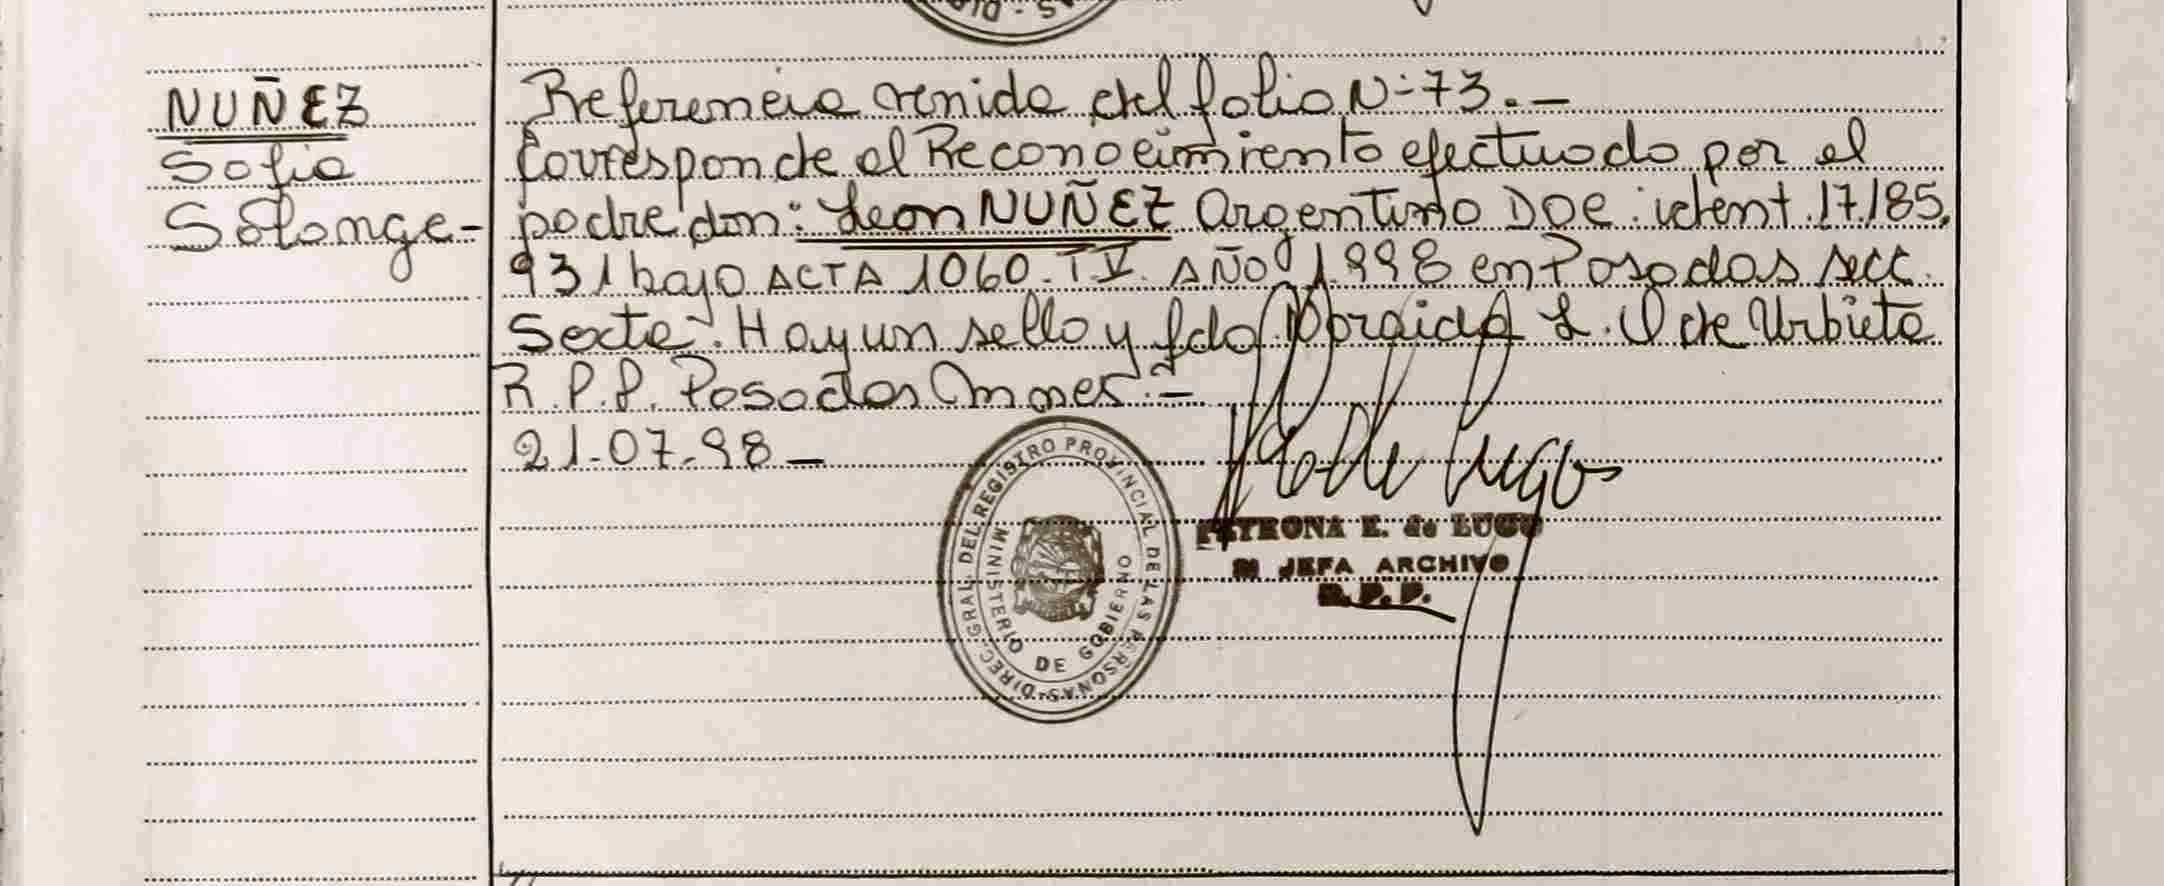 NUÑEZ
Sofia
Solange-
Referencia venida del folio N-73.-
Corresponde al Reconocimiento efectuado por el
padre don: Leon NUÑEZ Argentino Doc. ident. 17.185.
931 bajo ACTA 1060. T V. AÑO 1998 en Posadas secc.
Sexta. Hay un sello y fdo. L. O de Urbieta
R.P.P. Posadas Mnes.-
21-07-98-
DIREC. GRAL. DEL REGISTRO PROVINCIAL DE LAS PERSONAS
MINISTERIO DE GOBIERNO
PETRONA E. de LUGO
JEFA ARCHIVO
R.P.P.